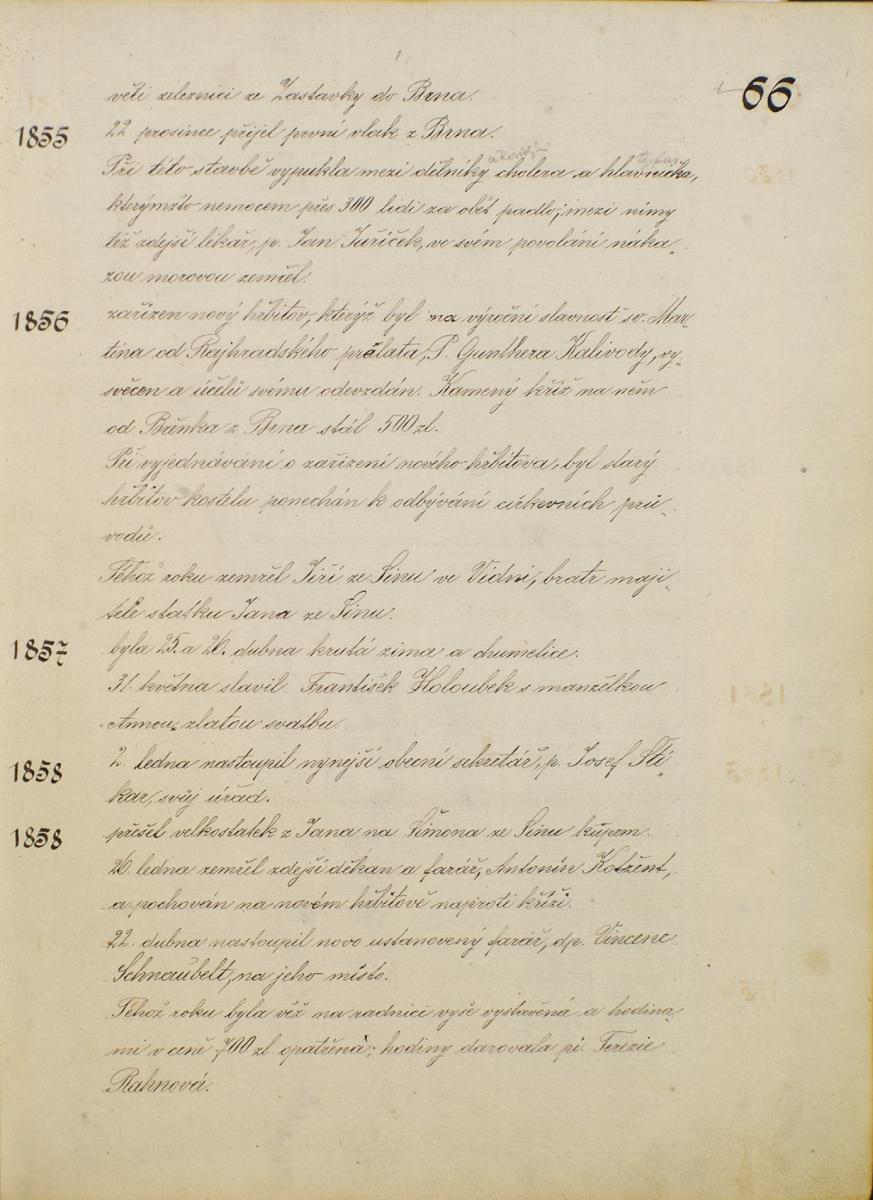 66
věti zeleznici ze Zastávky do Brna.
1855 22. prosince přijel první vlak z Brna.
Při této stavbě vypukla mezi dělníky cholera a hlavnička,
kterýmžto nemocem přes 300 lidi za oběť padlo; mezi nimy
též zdejší lékař, p. Jan Juříček, ve svém povolání náka„
zou morovou zemřel.
1856 zařízen nový hřbitov, kterýž byl na výroční slavnosť sv. Mar„
tina od Rajhradského prälata, P. Gunthera Kalivody, vy„
svěcen a účelů svému odevzdán. Kamený kříž na něm
od Břenka z Brna stál 500 zl.
Při vyjednávání o zařízení nového hřbitova, byl starý
hřbitov kostelu ponechán k odbývání církevních prů„
vodů.
Téhož roku zemřel Jiří ze Sinu ve Vídni, bratr maji„
tele statku Jana ze Sinu.
1857 byla 25. a 26. dubna krutá zima a chumelice.
31. května slavil František Holoubek s manželkou
Annou, zlatou svatbu.
1858 2. ledna nastoupil nynejší obecní sekretář, p. Josef Šti„
kar, svůj úřad.
1858 přešel velkostatek z Jana na Šimona ze Sinu kupem.
26. ledna zemřel zdejší děkan a farář, Antonín Kotžent,
a pochován na novém hřbitově naproti kříži.
22. dubna nastoupil novo ustanovený farář, dp. Vincenc
Schnaubelt, na jeho místo.
Téhož roku byla věž na radnici vyše vystavěná a hodina„
mi v ceně 700 zl. opatřená; hodiny darovala pí. Terezie
Rahnová.